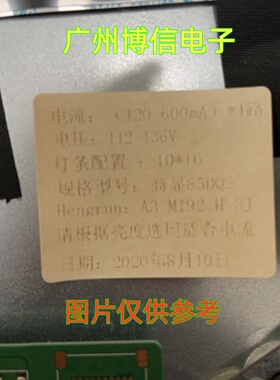 广州博信电子
电流：（420-600mA）*4路
电压：112-136V
灯条配置：10*16
规格型号：商显85DQ2
Hengrun: A3 M192.H
请根据亮度选用适合电流
日期：2020年8月10日
图片仅供参考